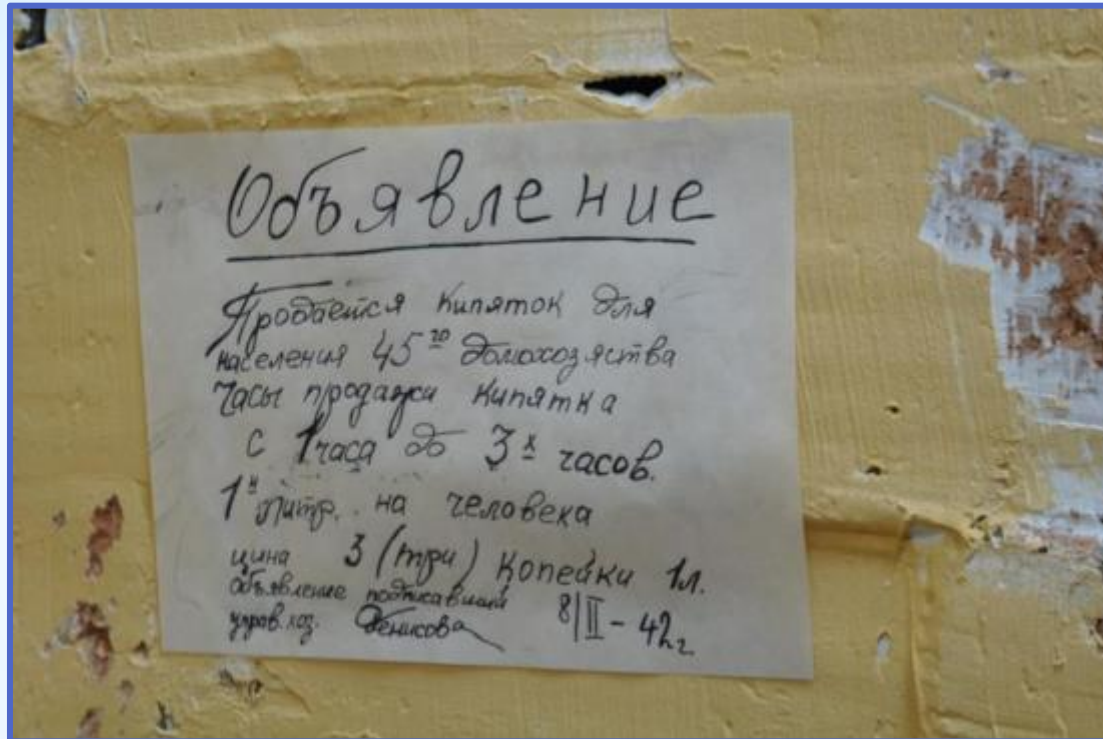 Объявление
Продаётся кипяток для
населения 45го домохозяства
Часы продажи кипятка
с 1 часа до 3х часов.
1н литр. на человека
цина 3 (три) копейки 1л.
объявление подписавший
управ.хоз. Денисова 8/II - 42г.